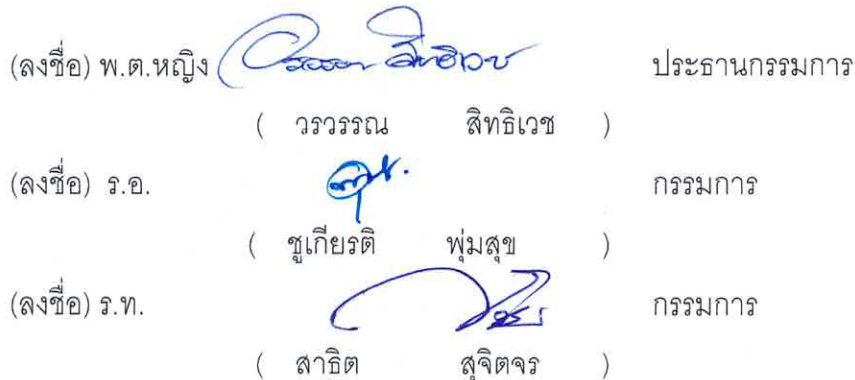 (ลงชื่อ) พ.ต.หญิง ประธานกรรมการ
( วรวรรณ สิทธิเวช )
(ลงชื่อ) ร.อ. กรรมการ
( ชูเกียรติ พุ่มสุข )
(ลงชื่อ) ร.ท. กรรมการ
( สาธิต สุจิตจร )